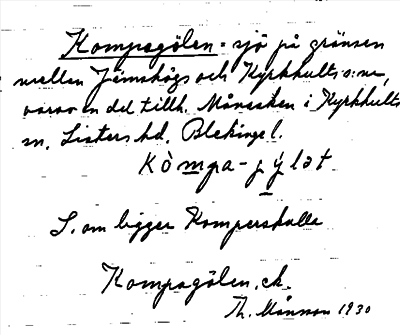 Kompagölen = sjö på gränsen
mellan Jämshögs och Kyrkhults s:nr,
varav en del tillh. Månasken i Kyrkhults
sn, Listers hd, Blekinge l.
Kòmpa-
S. om ligger Komperskulla
Kompagölen, ek.
Th. Månsson 1930